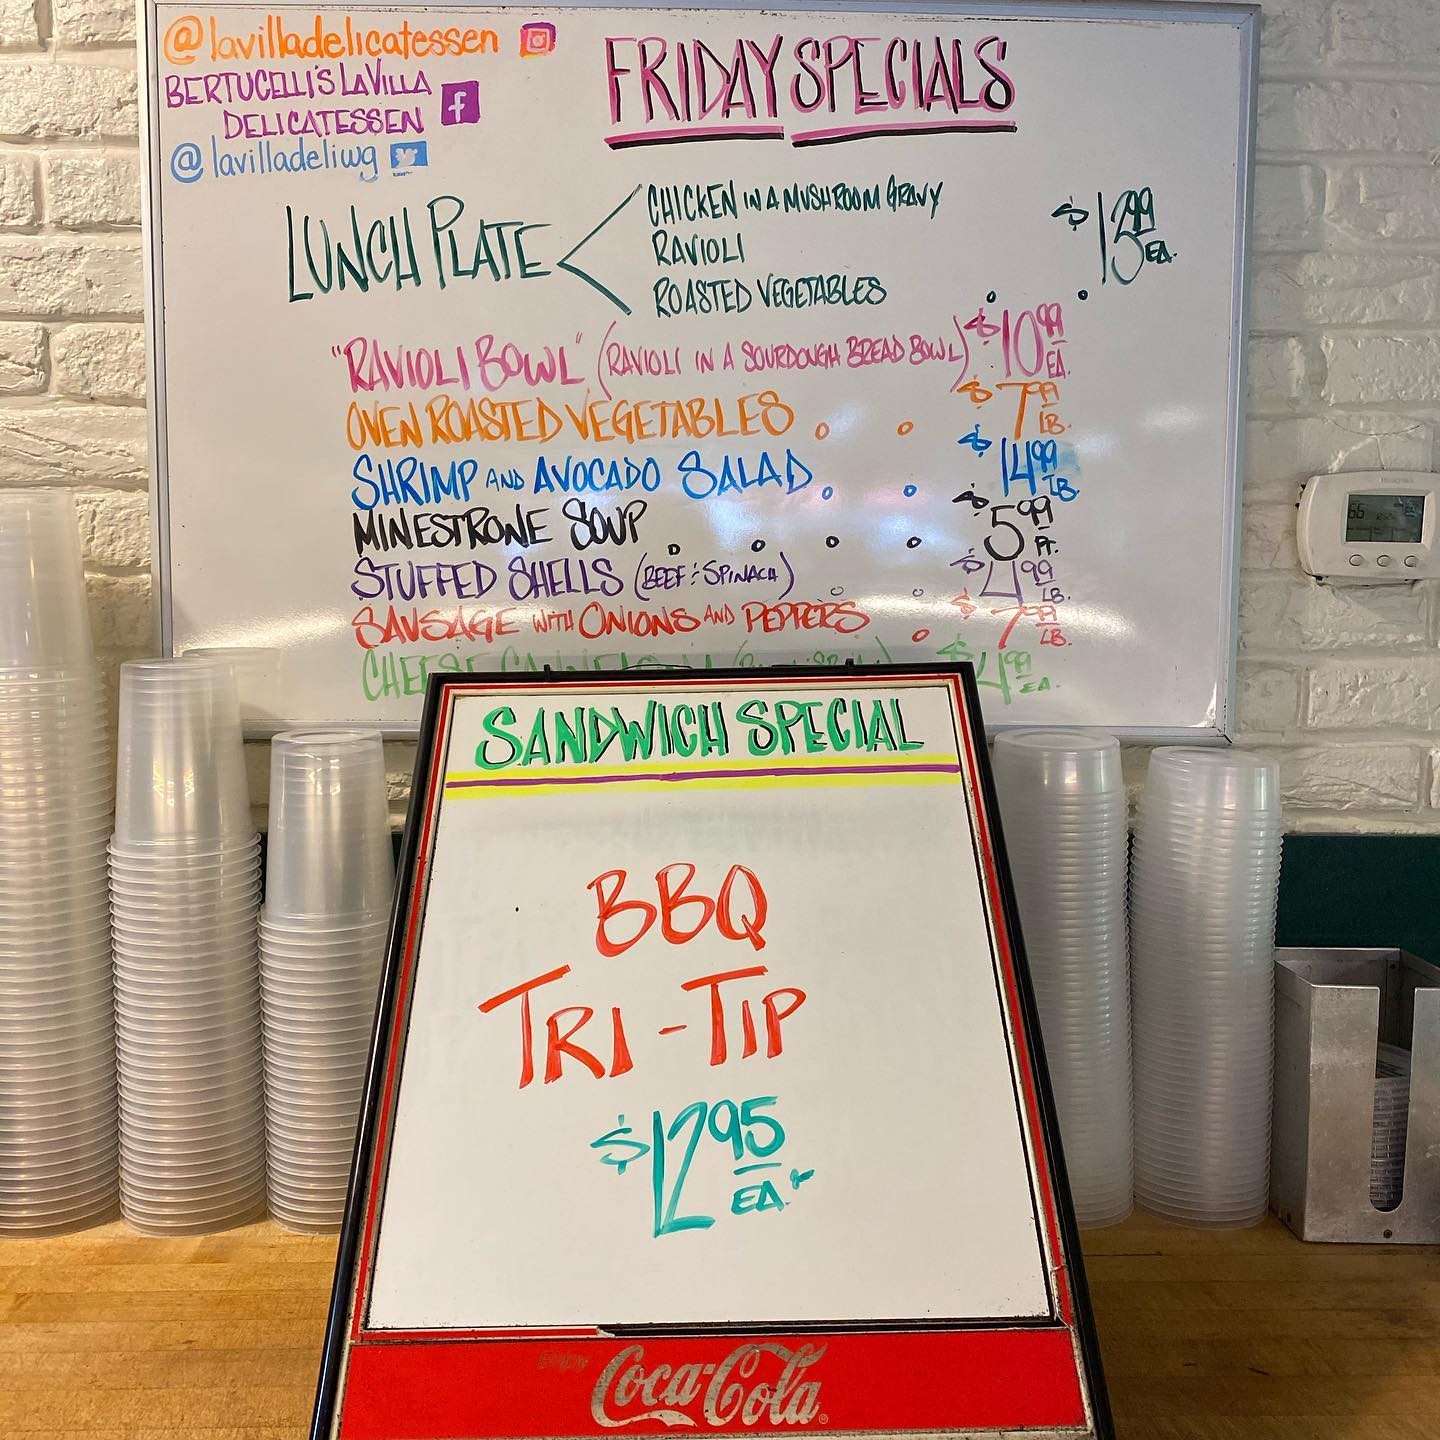 @lavilladelicatessen
BERTUCELLI'S LA VILLA
DELICATESSEN
@lavilladeliwg
FRIDAY SPECIALS
LUNCH PLATE
CHICKEN IN A MUSHROOM GRAVY
RAVIOLI
ROASTED VEGETABLES
$13.99 EA.
"RAVIOLI BOWL" (RAVIOLI IN A SOURDOUGH BREAD BOWL) $10.99 EA.
OVEN ROASTED VEGETABLES $7.99 LB.
SHRIMP AND AVOCADO SALAD $14.99 LB.
MINESTRONE SOUP $5.99 PT.
STUFFED SHELLS (BEEF & SPINACH) $ 99 LB.
SAUSAGE WITH ONIONS AND PEPPERS $7.99 LB.
CHEESE $4.99 EA.
SANDWICH SPECIAL
BBQ
TRI-TIP
$12.95 EA.
ENJOY
Coca-Cola